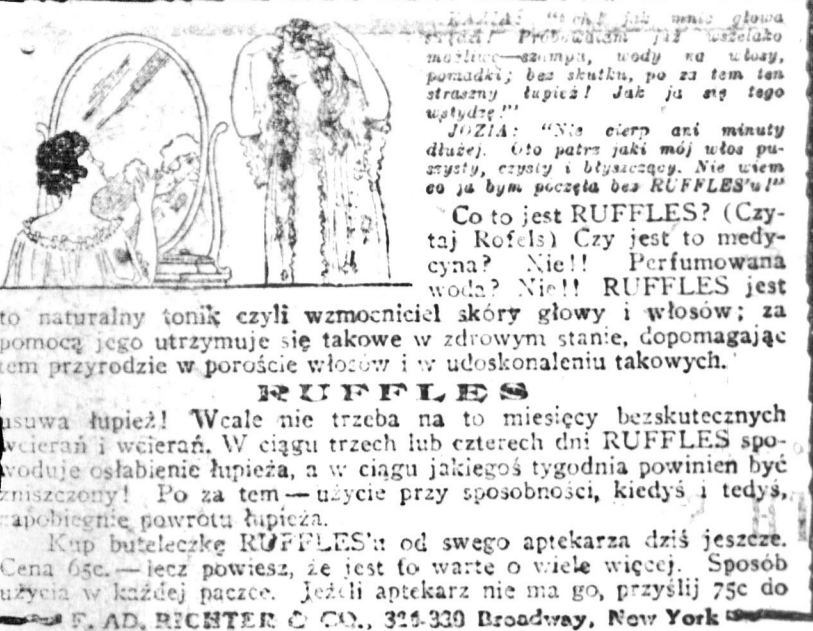 KAZIA: "Och! jak mnie głowa
swędzi! Próbowałam już wszelako
możliwe—szampu, wody na włosy,
pomadki; bez skutku, po za tem ten
straszny łupież! Jak ja się tego
wstydzę!"
JOZIA: "Nie cierp ani minuty
dłużej. Oto patrz jaki mój włos pu-
szysty, czysty i błyszczący. Nie wiem
co ja bym poczęła bez RUFFLES'u!"
Co to jest RUFFLES? (Czy-
taj Rofels) Czy jest to medy-
cyna? Nie!! Perfumowana
woda? Nie!! RUFFLES jest
to naturalny tonik czyli wzmocniciel skóry głowy i włosów; za
pomocą jego utrzymuje się takowe w zdrowym stanie, dopomagając
tem przyrodzie w poroście włosów i w udoskonaleniu takowych.
RUFFLES
usuwa łupież! Wcale nie trzeba na to miesięcy bezskutecznych
wcierań i wcierań. W ciągu trzech lub czterech dni RUFFLES spo-
woduje osłabienie łupieża, a w ciągu jakiegoś tygodnia powinien być
zniszczony! Po za tem — użycie przy sposobności, kiedyś i tedyś,
zapobiegnie powrotu łupieża.
Kup buteleczkę RUFFLES'u od swego aptekarza dziś jeszcze.
Cena 65c. — lecz powiesz, że jest to warte o wiele więcej. Sposób
użycia w każdej paczce. Jeżeli aptekarz nie ma go, przyślij 75c do
F. AD. RICHTER & CO., 326-330 Broadway, New York